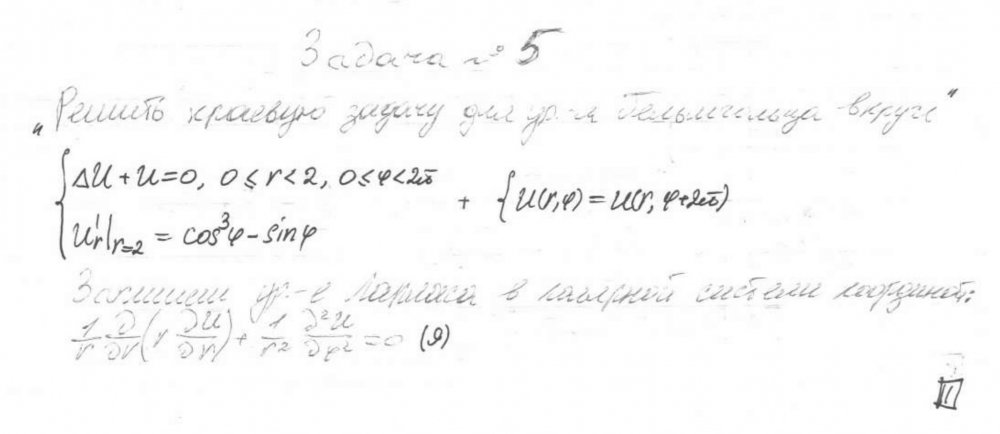 Задача № 5
„Решить краевую задачу для ур-я Гельмгольца в круге"
Δu + u = 0, 0 ≤ r < 2, 0 ≤ φ < 2π + { u(r, φ) = u(r, φ+2π)
u'r|r=2 = cos³φ - sinφ
Запишем ур-е Лапласа в полярной системе координат:
1/r ∂/∂r (r ∂u/∂r) + 1/r² ∂²u/∂φ² = 0 (Я)
1